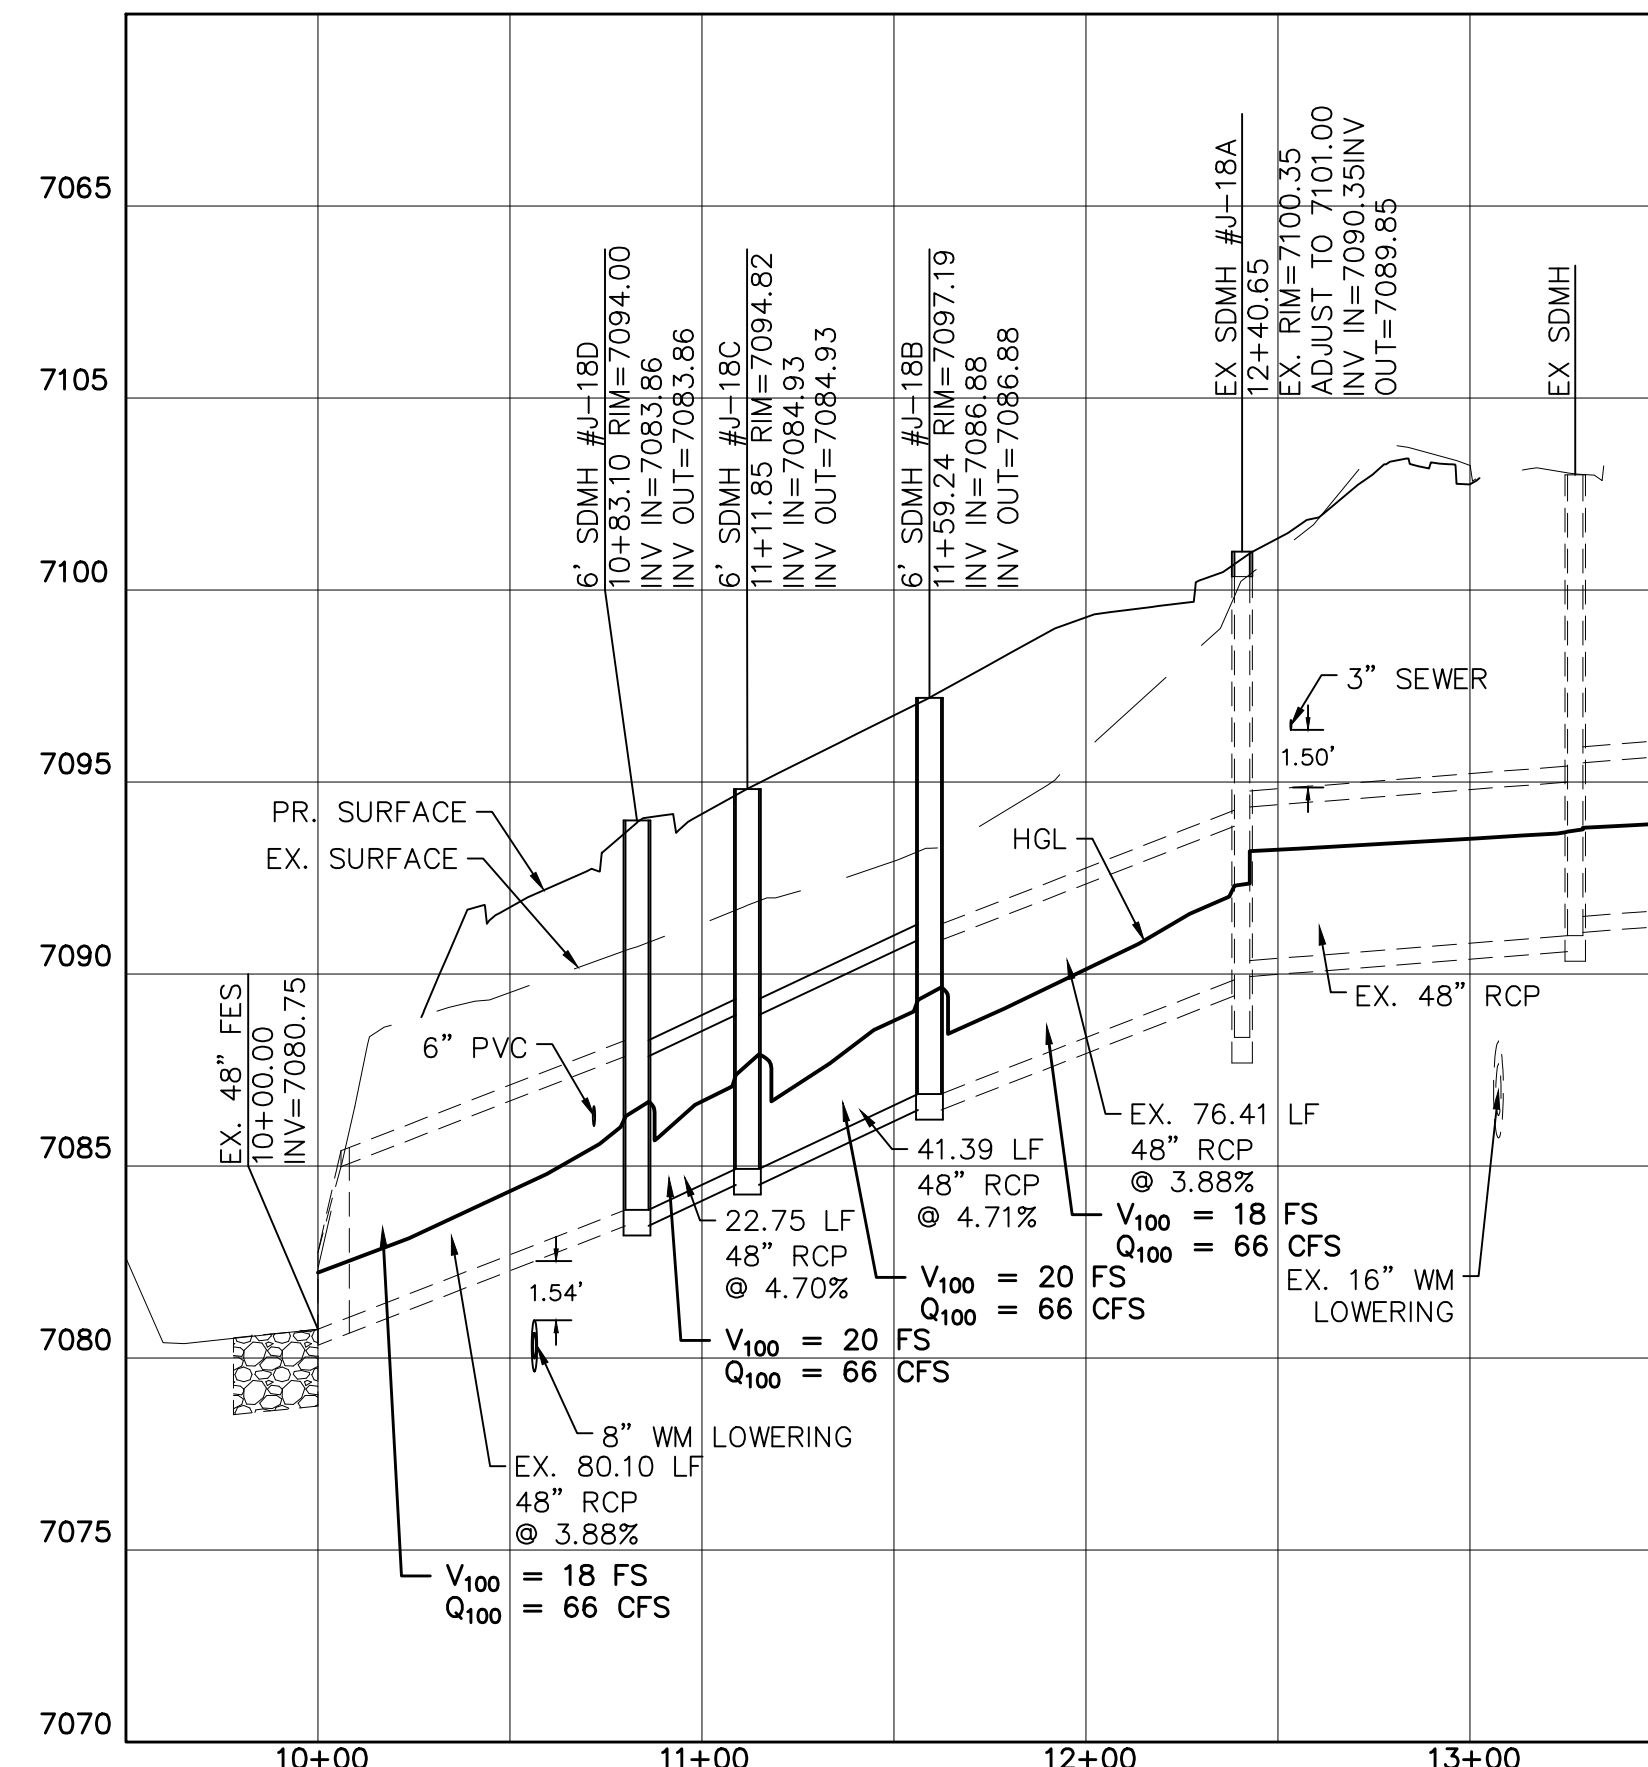 7065
7105
7100
7095
7090
7085
7080
7075
7070
10+00
11+00
12+00
13+00
EX. 48" FES
10+00.00
INV=7080.75
6' SDMH #J-18D
10+83.10 RIM=7094.00
INV IN=7083.86
INV OUT=7083.86
6' SDMH #J-18C
11+11.85 RIM=7094.82
INV IN=7084.93
INV OUT=7084.93
6' SDMH #J-18B
11+59.24 RIM=7097.19
INV IN=7086.88
INV OUT=7086.88
EX SDMH #J-18A
12+40.65
EX. RIM=7100.35
ADJUST TO 7101.00
INV IN=7090.35INV
OUT=7089.85
EX SDMH
3" SEWER
1.50'
PR. SURFACE
EX. SURFACE
HGL
6" PVC
EX. 48" RCP
EX. 76.41 LF
48" RCP
@ 3.88%
V100 = 18 FS
Q100 = 66 CFS
41.39 LF
48" RCP
@ 4.71%
V100 = 20 FS
Q100 = 66 CFS
22.75 LF
48" RCP
@ 4.70%
V100 = 20 FS
Q100 = 66 CFS
EX. 16" WM
LOWERING
1.54'
8" WM LOWERING
EX. 80.10 LF
48" RCP
@ 3.88%
V100 = 18 FS
Q100 = 66 CFS